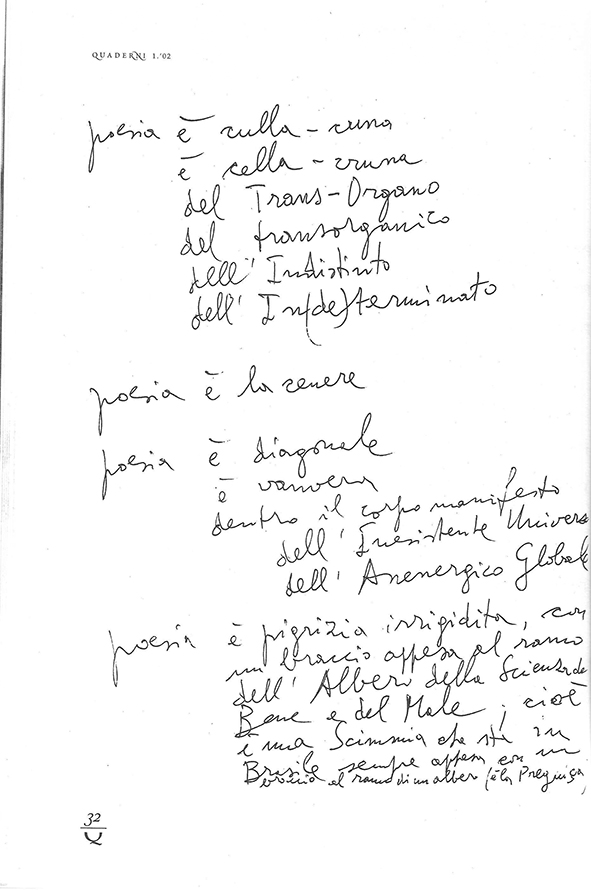 QUADERNI 1.'02
poesia è culla - cruna
è cella - cruna
del Trans-Organo
del transorganico
dell'Indistinto
dell'In(de)terminato
poesia è la cenere
poesia è diagonale
è vanvera
dentro il corpo manifesto
dell'Inesistente Univers
dell'Anenergico Globale
poesia è pigrizia irrigidita, con
un braccio appesa al ramo
dell'Albero della Scienza de
Bene e del Male; cioè
è una Scimmia che stà in
Brasile sempre appesa con un
braccio al ramo di un albero (è la Preguiça,
32
Q